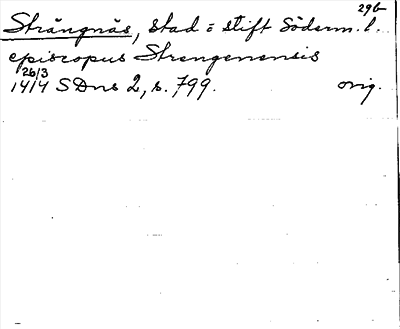 29b
Strängnäs, stad o stift Söderm. l.
episcopus Strengenensis
26/3
1414 SDns 2, s. 799. orig.